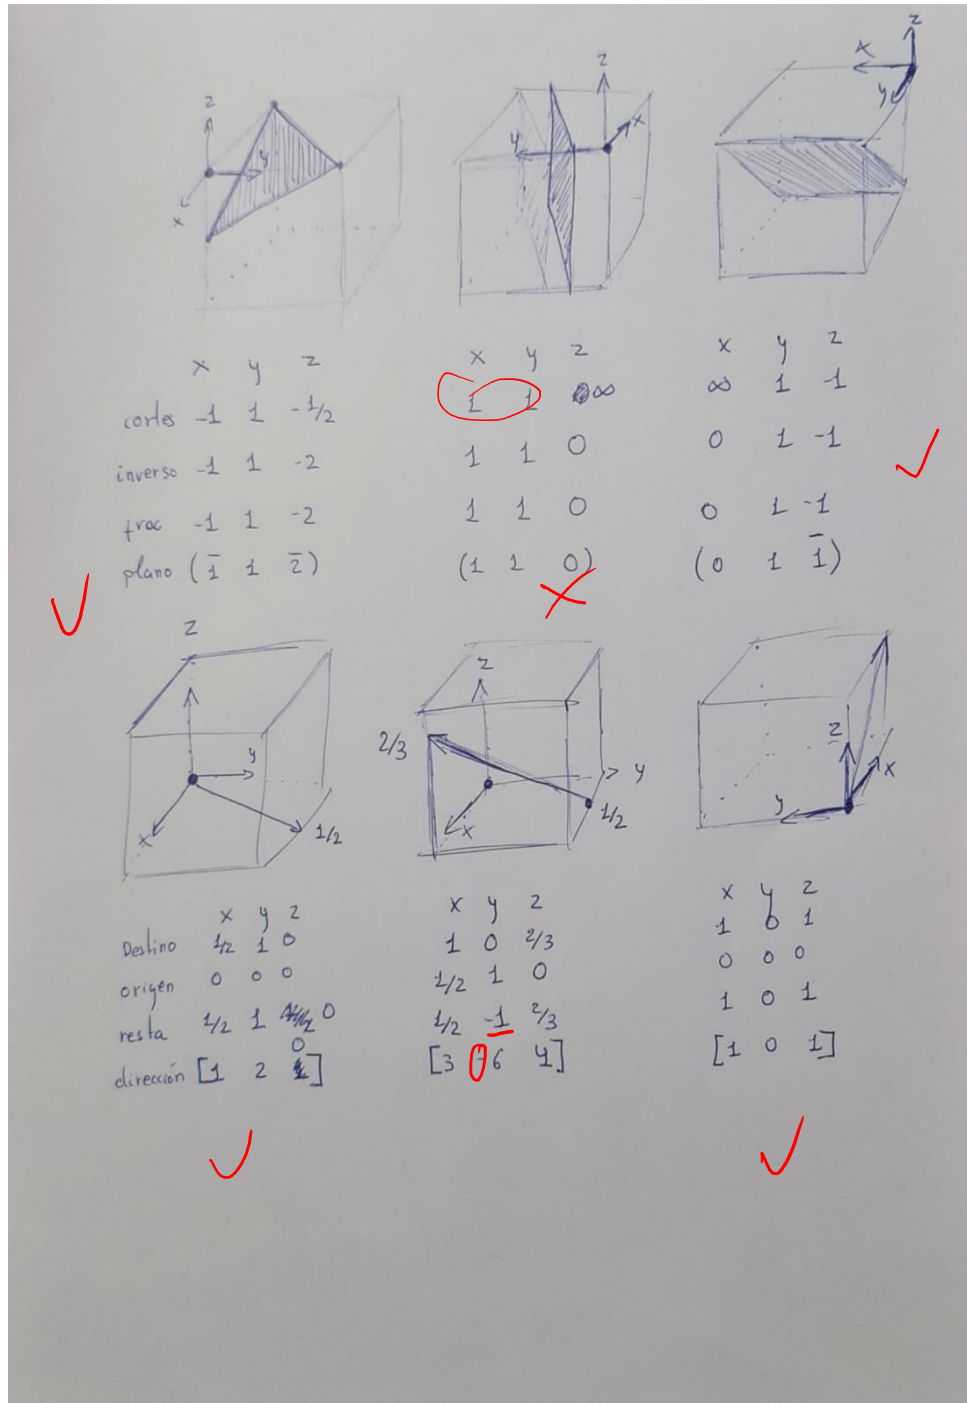 z
y
x
z
y
x
z
x
y
x y z
cortes -1 1 -1/2
inverso -1 1 -2
frac -1 1 -2
plano (1̅ 1 2̅)
x y z
1 1 ∞
1 1 0
1 1 0
(1 1 0)
x y z
∞ 1 -1
0 1 -1
0 1 -1
(0 1 1̅)
z
y
x
1/2
z
2/3
y
x
1/2
z
x
y
x y z
Destino 1/2 1 0
origen 0 0 0
resta 1/2 1 0
dirección [1 2 0]
x y z
1 0 2/3
1/2 1 0
1/2 -1 2/3
[3 -6 4]
x y z
1 0 1
0 0 0
1 0 1
[1 0 1]